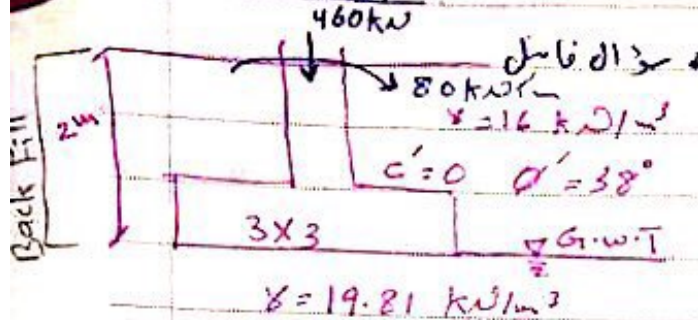 460kN
سؤال فاصل
80 kN/m
γ = 16 kN/m³
2m
Back Fill
c' = 0 φ' = 38°
3 x 3
G.W.T
γ = 19.81 kN/m³